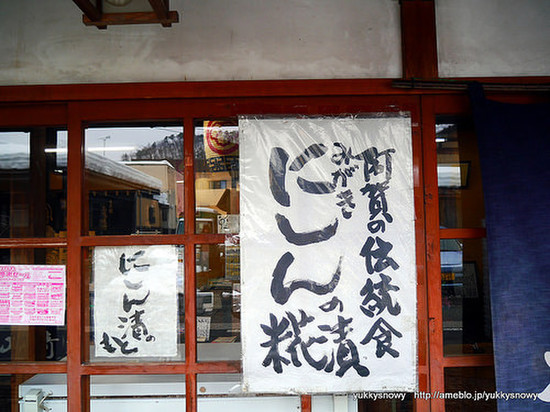 阿賀の伝統食
みがき
にしんの糀漬
にしん漬の
もと
yukkysnowy http://ameblo.jp/yukkysnowy